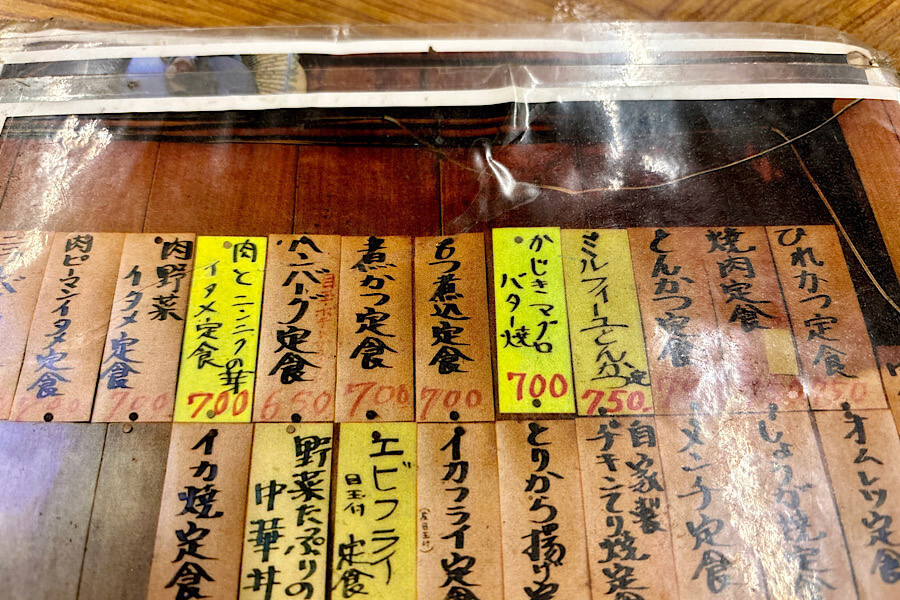 ひれかつ定食
750
焼肉定食
とんかつ定食
ミルフィーユとんかつ定
750.
かじきマグロ
バター焼
700
もつ煮込定食
700
煮かつ定食
700
ハンバーグ定食
650
肉とニンニクの芽
イタメ定食
700
肉野菜
イタメ定食
700
肉ピーマンイタメ定食
オムレツ定食
しょうが焼定食
メンチ定食
自家製
チキンてり焼定
とりから揚げ定
イカフライ定食
エビフライ
目玉付 定食
野菜たっぷりの
中華丼
イカ焼定食